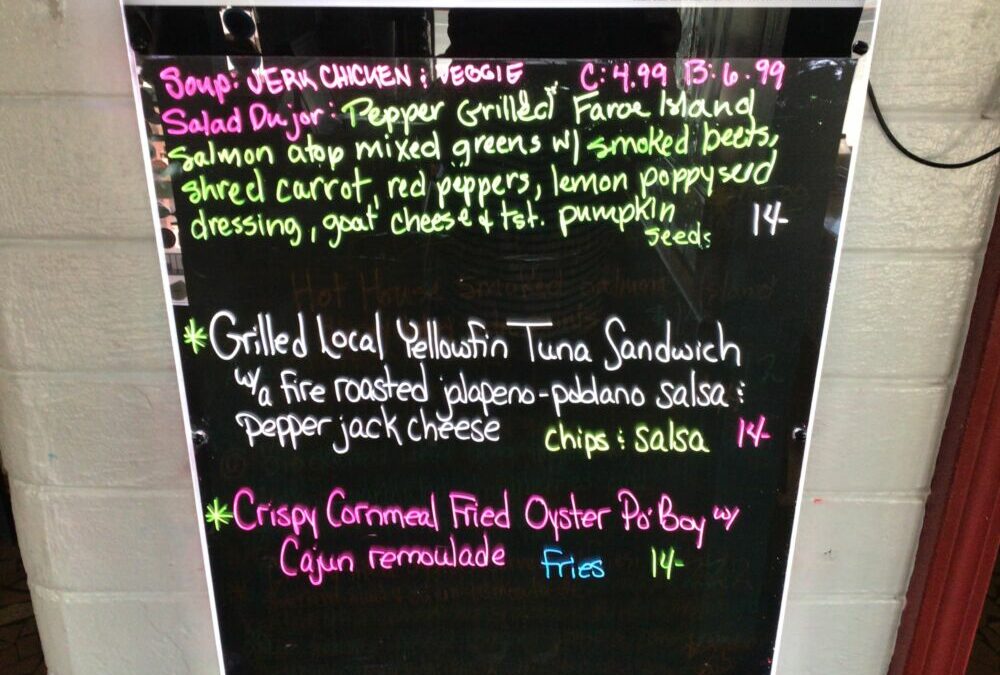 Soup: JERK CHICKEN & VEGGIE C: 4.99 B: 6.99
Salad Dujor: Pepper Grilled Faroe Island
salmon atop mixed greens w/ smoked beets,
shred carrot, red peppers, lemon poppyseed
dressing, goat cheese & tst. pumpkin
seeds 14-
*Grilled Local Yellowfin Tuna Sandwich
w/a fire roasted jalapeno-poblano salsa &
pepper jack cheese chips & salsa 14-
*Crispy Cornmeal Fried Oyster Po'Boy w/
Cajun remoulade Fries 14-